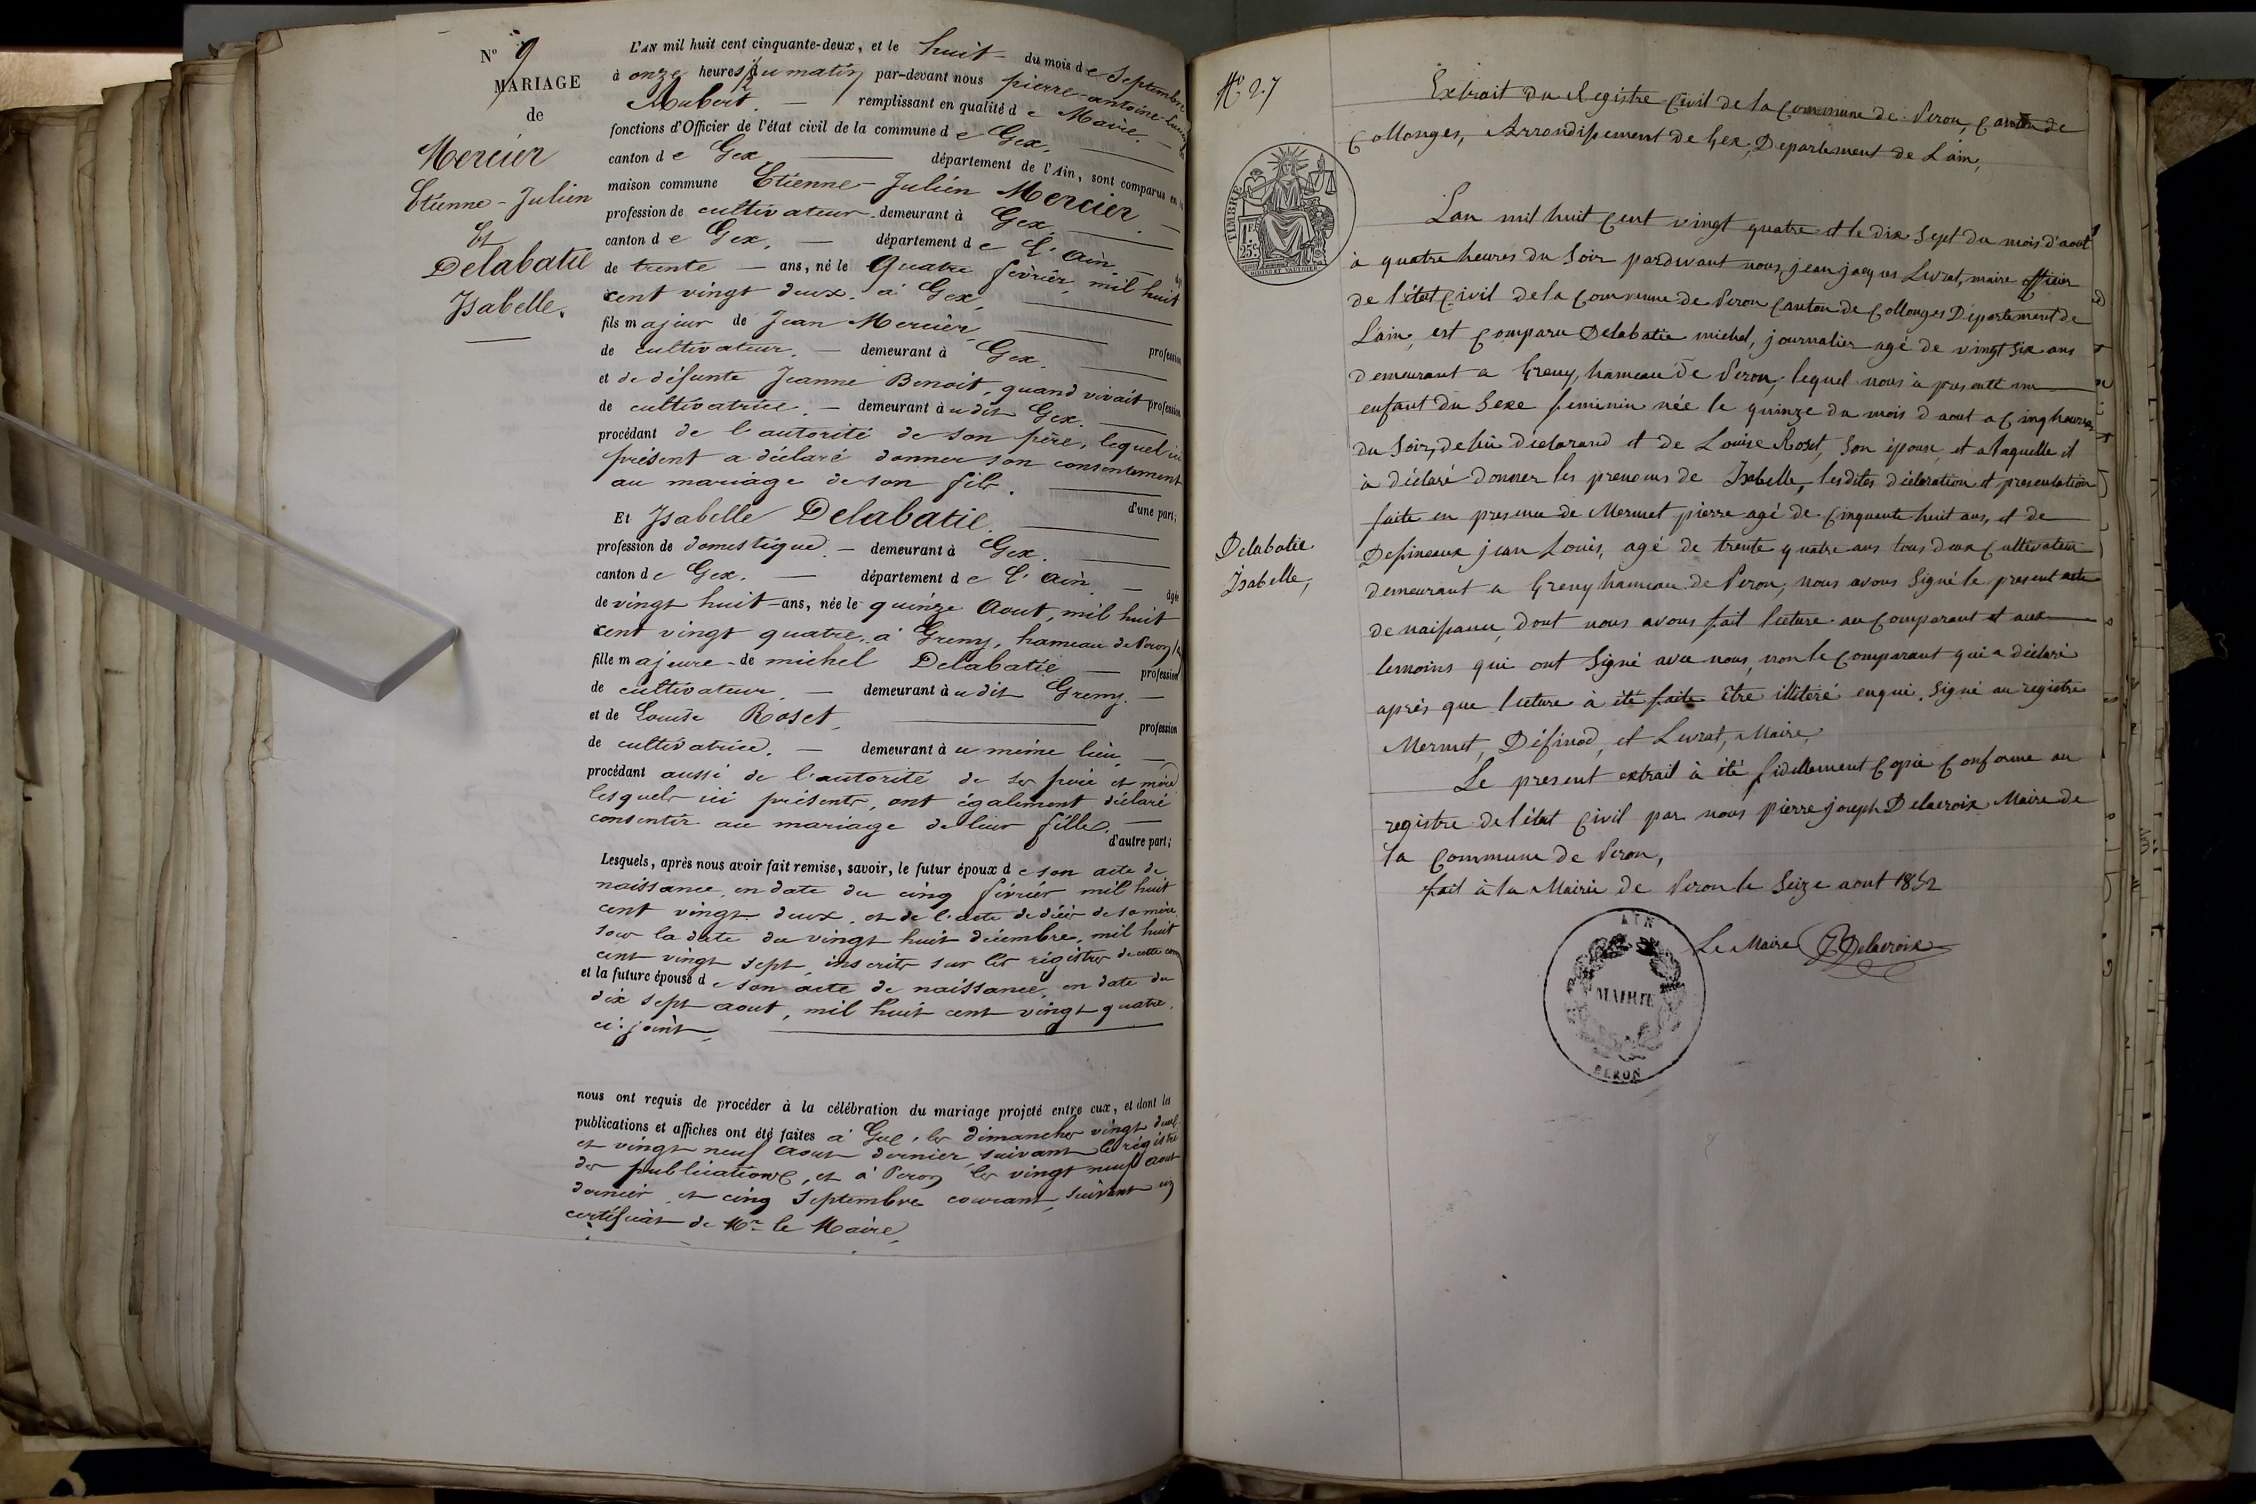 N° 9
MARIAGE
de
Mercier
Etienne-Julien
Et
Delabatie
Isabelle.
L'AN mil huit cent cinquante-deux, et le huit du mois de Septembre
à onze heures du matin par-devant nous pierre-antoine
remplissant en qualité de Maire.
fonctions d'Officier de l'état civil de la commune de Gex.
canton de Gex département de l'Ain, sont comparus en la
maison commune Etienne-Julien Mercier.
profession de cultivateur demeurant à Gex.
canton de Gex. département de l'ain
de trente ans, né le quatre février, mil huit
cent vingt deux. à Gex,
fils majeur de Jean Mercier, profession
de cultivateur. demeurant à Gex.
et de défunte Jeanne Benoit, quand vivait profession
de cultivatrice. demeurant àudit Gex.
procédant de l'autorité de son père, lequel ici
présent a déclaré donner son consentement
au mariage de son fils. d'une part;
Et Isabelle Delabatie.
profession de domestique. demeurant à Gex.
canton de Gex. département de l'ain âgée
de vingt huit ans, née le quinze Aout, mil huit
cent vingt quatre. à Greny, hameau de Peron
fille majeure de michel Delabatie profession
de cultivateur. demeurant àudit Greny.
et de Louise Roset, profession
de cultivatrice. demeurant àu même lieu,
procédant aussi de l'autorité de ses père et mère
lesquels ici présents, ont également déclaré
consentir au mariage de leur fille, d'autre part;
Lesquels, après nous avoir fait remise, savoir, le futur époux de son acte de
naissance, en date du cinq février mil huit
cent vingt deux, et de l'acte de décès de sa mère
sous la date du vingt huit décembre, mil huit
cent vingt sept, inscrits sur les régistres de cette com
et la future épouse de son acte de naissance, en date du
dix sept aout, mil huit cent vingt quatre.
ci-joint,
nous ont requis de procéder à la célébration du mariage projeté entre eux, et dont les
publications et affiches ont été faites à Gex, les dimanches vingt deux
et vingt neuf Aout dernier, suivant le régistre
des publications, et à Peron les vingt neuf aout
dernier et cinq Septembre courant, suivant un
certificat de Mr le Maire,
N° 27
TIMBRE
Extrait du Registre Civil de la Commune de Peron, Canton de
Collonges, Arrondissement de Gex, Departement de L'ain,
Lan mil huit cent vingt quatre et le dix Sept du mois d'aout
à quatre heures du Soir pardevant nous, jean jacques Livrat, maire officier
de l'état Civil de la Commune de Peron Canton de Collonges Département de
L'ain, est Comparu Delabatie michel, journalier agé de vingt Six ans
demeurant a Greny, hameau de Peron, lequel nous à presenté un
enfant du Sexe feminin née le quinze du mois d aout a Cinq heures
du Soir, de lui declarand et de Louise Roset, Son épouse, et a laquelle il
à déclaré donner les prenoms de Isabelle, lesdites déclaration et presentation
faite en presence de Mermet pierre agé de Cinquente huit ans, et de
Defineaux jean Louis, agé de trente quatre ans tous deux Cultivateur
demeurant a Greny hameau de Peron, nous avons Signé le present acte
de naissance, dont nous avons fait lecture au Comparant et aux
temoins qui ont Signé avec nous, non le Comparant qui a déclaré
après que lecture à été faite être illiteré enqui. Signé au registre
Mermet, Définod, et Livrat, Maire,
Le present extrait à été fidellement Copié Conforme au
registre de l'état Civil par nous Pierre joseph Delacroix Maire de
la Commune de Peron,
fait à la Mairie de Peron le Seize aout 1852
Le Maire Delacroix
Delabatie
Isabelle,
AIN
MAIRIE
PERON